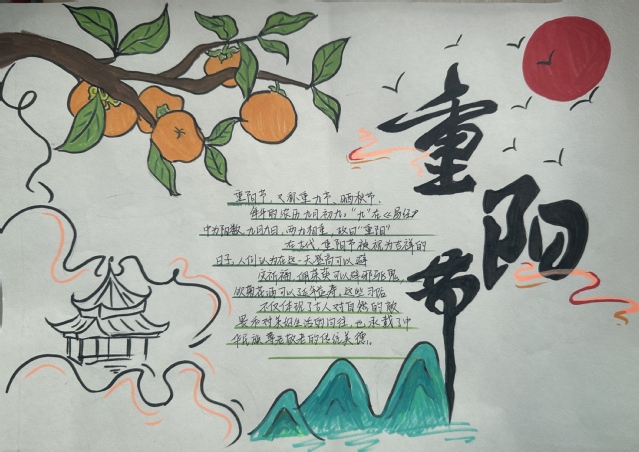 重阳节
重阳节，又称重九节、晒秋节，
每年的农历九月初九。"九"在《易经》
中为阳数，九月九日，两九相重，故曰"重阳"
在古代，重阳节被视为吉祥的
日子，人们认为在这一天登高可以避
灾祈福，佩茱萸可以辟邪驱鬼，
饮菊花酒可以延年益寿，这些习俗
不仅体现了古人对自然的敬
畏和对美好生活的向往，也承载了中
华民族尊老敬老的传统美德。